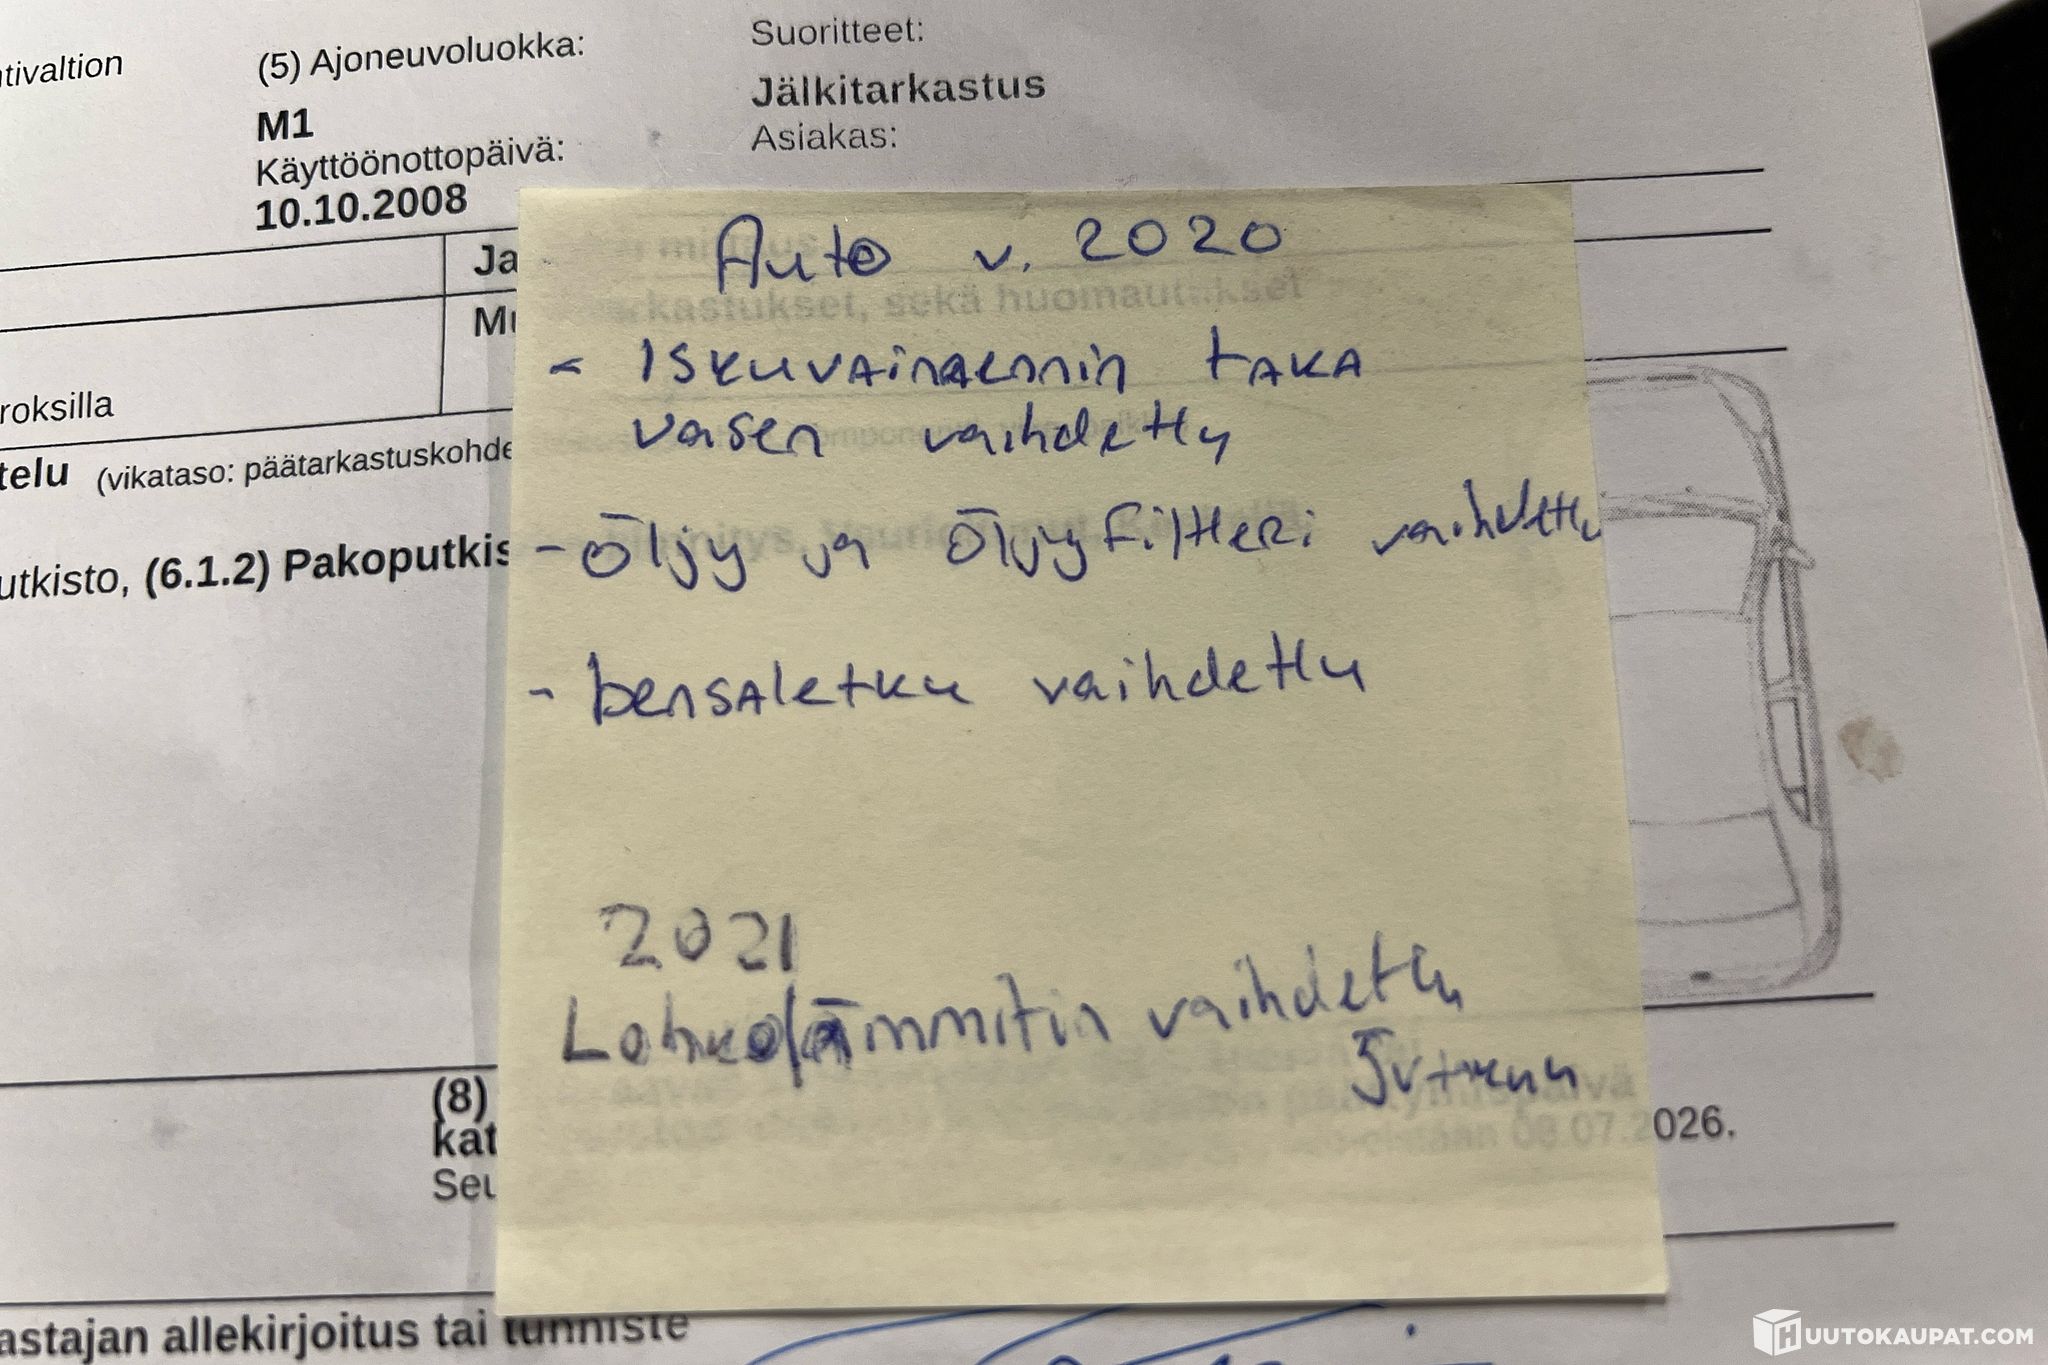 tivaltion
(5) Ajoneuvoluokka:
M1
Käyttöönottopäivä:
10.10.2008
Suoritteet:
Jälkitarkastus
Asiakas:
Ja
Mu
roksilla
telu (vikataso: päätarkastuskohde
utkisto, (6.1.2) Pakoputkis
Auto v. 2020
- Iskuvaimennin taka
vasen vaihdettu
- Öljy ja Öljyfiltteri vaihdettu
- bensaletku vaihdettu
2021
Lohkolämmitin vaihdettu
(8)
kat
Seu
08.07.2026.
astajan allekirjoitus tai tunniste
HUUTOKAUPAT.COM